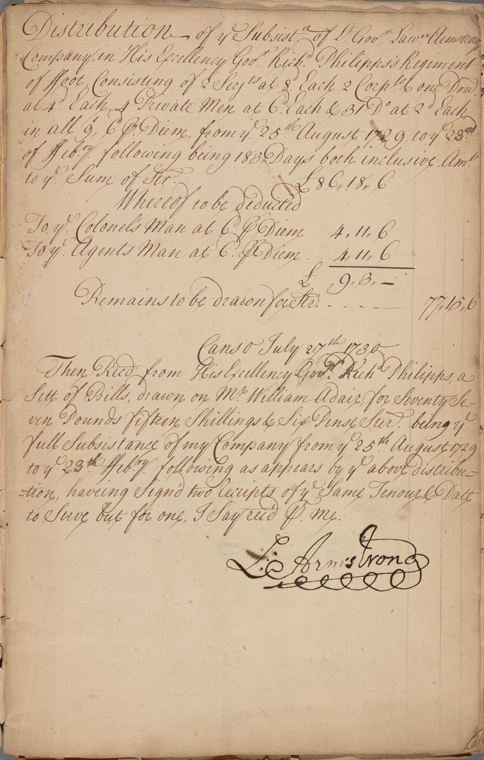 Distribution of yᵉ Subsistᶜᵉ of Lᵗ Govʳ Lawʳ Armstrong
Company in His Excellency Govʳ Richᵈ Philipps's Regiment
of ffoot Consisting of 2 Serjᵗˢ at 8 Each 2 Corpˡˢ & one Drumʳ
at 4ᵈ Each, 4 Private Men at 6ᵈ Each & 31 Dᵒ at 2ᵈ Each
in all 9, 6 ⅌ Diem, from yᵉ 25ᵗʰ August 1729 to yᵉ 23ʳᵈ
of ffebʳʸ following being 183 Days both inclusive Amᵗˢ
to yᵉ Sum of Str. £86,18,6
Whereof to be deducted
To yᵉ Colonels Man at 6ᵈ ⅌ Diem 4,11,6
To yᵉ Agents Man at 6ᵈ ⅌ Diem 4,11,6
£ 9,3,—
Remains to be drawn for Str. - - - - 77,15,6
Canso July 27ᵗʰ 1730
Then Recd from His Excellency Govʳ Richᵈ Philipps, a
Sett of Bills, drawn on Mʳ William Adair for Seventy Se-
ven Pounds fifteen Shillings & Six Pense Sterˡ being yᵉ
full Subsistance of my Company from yᵉ 25ᵗʰ August 1729
to yᵉ 23ᵗʰ ffebʳʸ following as appears by yᵉ above distribu-
-tion, haveing Signd two Reciepts of yᵉ Same Tenour & Date
to Serve but for one, I Say recd ⅌ Me.
L: Armstrong